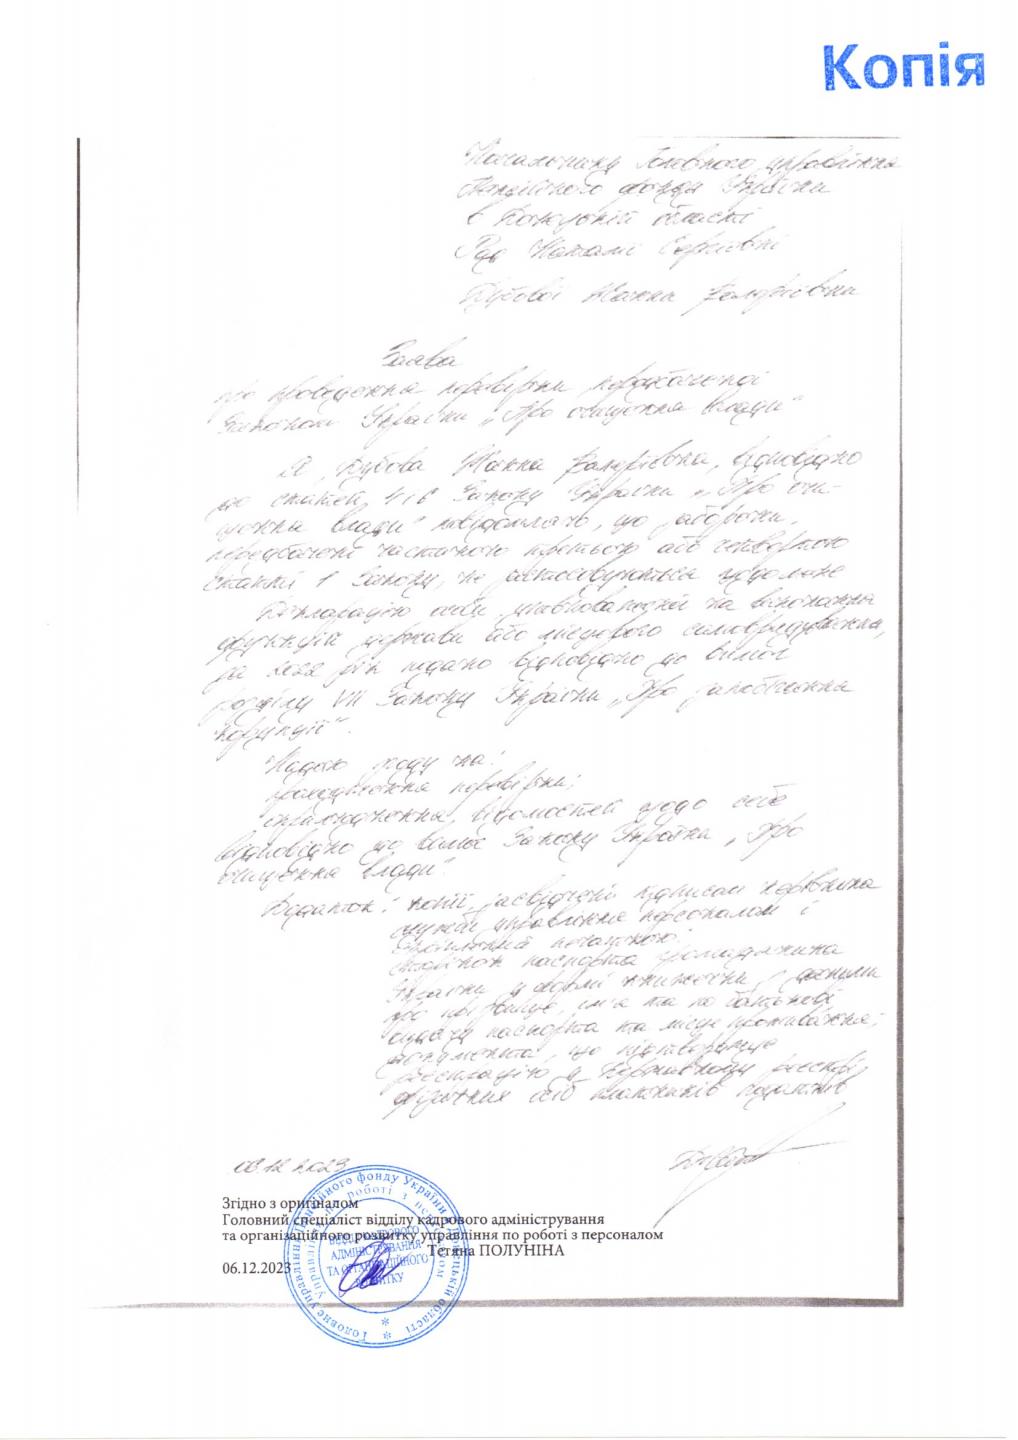 Копія
Начальнику Головного управління
Пенсійного фонду України
в Донецькій області
Рад Наталі Сергіївні
Бубової Жанни Валеріївни
Заява
про проведення перевірки, передбаченої
Законом України „Про очищення влади"
Я, Бубова Жанна Валеріївна, відповідно
до статей 4 і 6 Закону України „Про очи-
щення влади" повідомляю, що заборони,
передбачені частиною третьою або четвертою
статті 1 Закону, не застосовуються щодо мене
Декларацію особи, уповноваженої на виконання
функцій держави або місцевого самоврядування,
за 2022 рік подано відповідно до вимог
розділу VII Закону України „Про запобігання
корупції".
Надаю згоду на:
проходження перевірки;
оприлюднення відомостей щодо себе
відповідно до вимог Закону України „Про
очищення влади".
Додаток: копії, засвідчені підписом керівника
служби управління персоналом і
скріплений печаткою:
сторінок паспорта громадянина
України у формі книжечки з даними
про прізвище, ім'я та по батькові,
видачу паспорта та місце проживання;
документа, що підтверджує
реєстрацію у Державному реєстрі
фізичних осіб платників податків
2023
Згідно з оригіналом
Головний спеціаліст відділу кадрового адміністрування
та організаційного розвитку управління по роботі з персоналом
Тетяна ПОЛУНІНА
06.12.2023
Головне управління Пенсійного фонду України в Донецькій області
Управління по роботі з персоналом
ВІДДІЛ КАДРОВОГО
АДМІНІСТРУВАННЯ
ТА ОРГАНІЗАЦІЙНОГО
РОЗВИТКУ